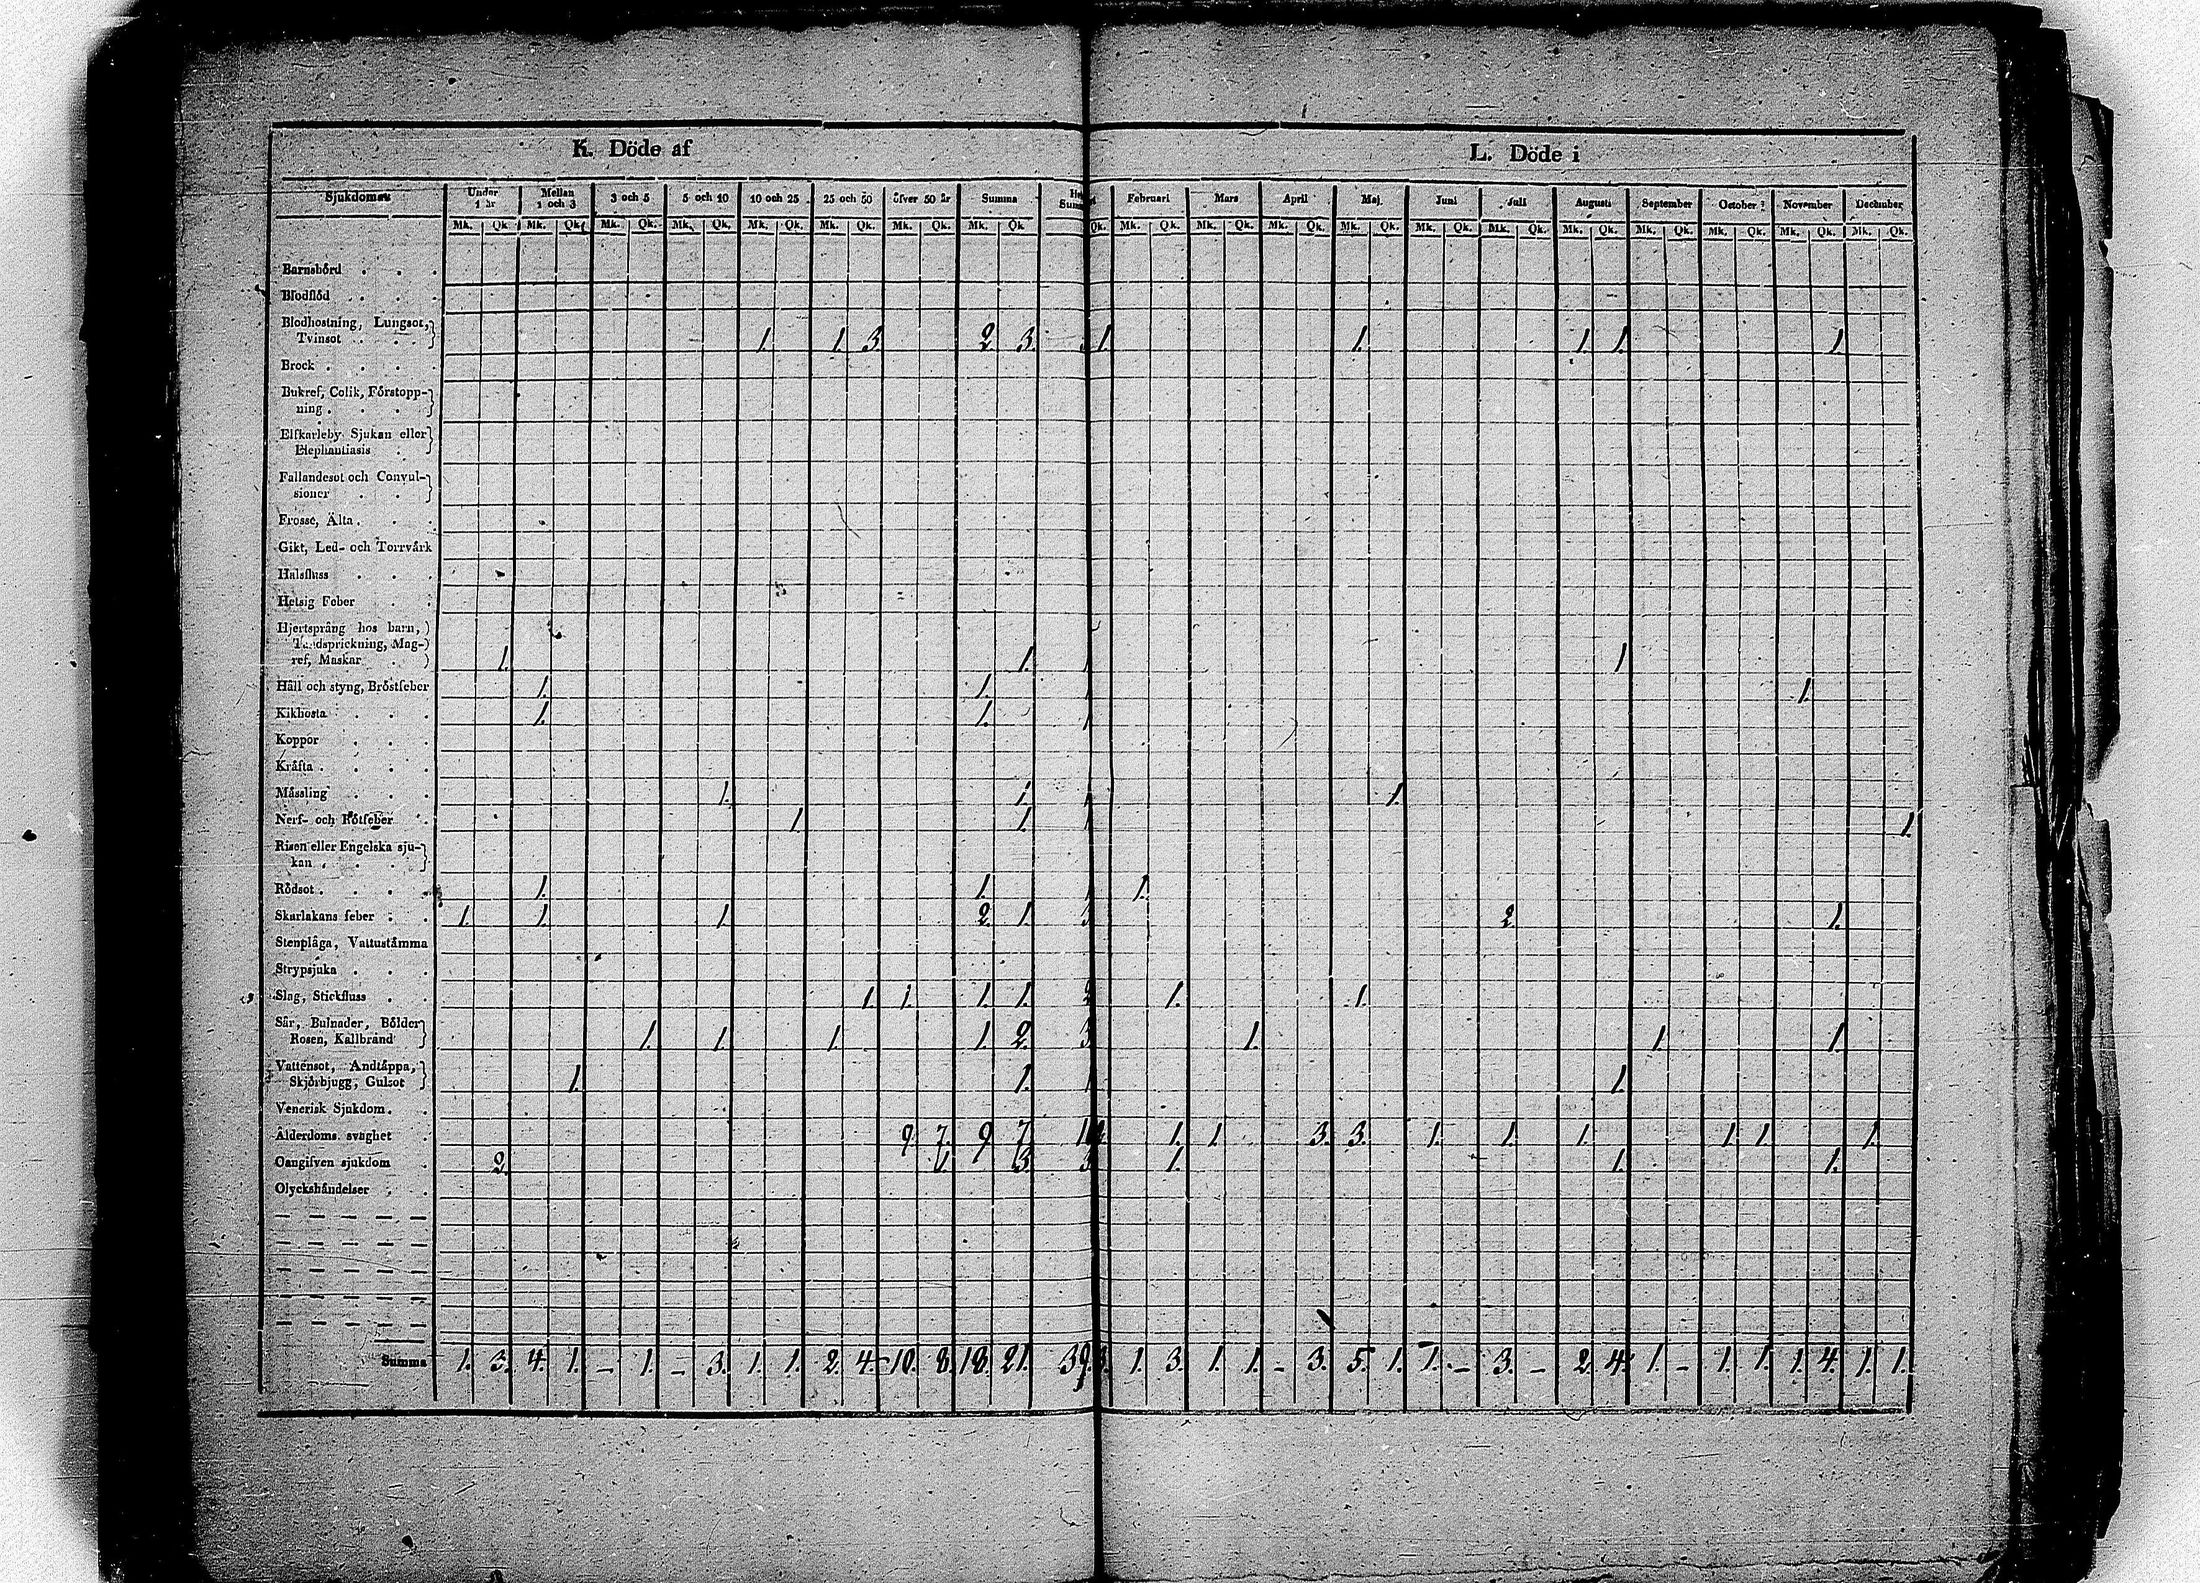 K. Döde af
L. Döde i
Sjukdomar Under 1 år Mellan 1 och 3 3 och 5 5 och 10 10 och 25 25 och 50 öfver 50 år Summa Februari Mars April Maj Juni Juli Augusti September October November December
Mk. Qk. Mk. Qk. Mk. Qk. Mk. Qk. Mk. Qk. Mk. Qk. Mk. Qk. Mk. Qk. Qk. Mk. Qk. Mk. Qk. Mk. Qk. Mk. Qk. Mk. Qk. Mk. Qk. Mk. Qk. Mk. Qk. Mk. Qk. Mk. Qk. Mk. Qk.
Barnsbörd . . .
Blodflöd . . .
Blodhostning, Lungsot,
Tvinsot . . . 1. 1. 3. 2. 3. 1. 1. 1. 1. 1.
Brock . . . .
Bukref, Colik, Förstopp-
ning . . .
Elfkarleby Sjukan eller
Elephantiasis .
Fallandesot och Convul-
sioner . .
Frossa, Älta . . .
Gikt, Led- och Torrvärk
Halsfluss . . .
Hetsig Feber . .
Hjertsprång hos barn,
Tandsprickning, Mag-
ref, Maskar . 1. 1. 1 1
Håll och styng, Bröstfeber 1. 1. 1 1.
Kikhosta . . . 1. 1. 1
Koppor . . .
Kräfta . . . .
Mässling . . . 1. 1. 1 1.
Nerf- och Rötfeber . 1. 1. 1 1.
Risen eller Engelska sju-
kan . . .
Rödsot . . . . 1. 1. 1 1.
Skarlakans feber . . 1. 1. 1. 2. 1. 3 2. 1.
Stenplåga, Vattustämma
Strypsjuka . . .
Slag, Stickfluss . . 1. 1. 1. 1. 2 1. 1.
Sår, Bulnader, Bölder
Rosen, Kallbrand 1. 1. 1. 1. 2. 3 1. 1. 1.
Vattensot, Andtäppa,
Skjörbjugg, Gulsot 1. 1. 1 1.
Venerisk Sjukdom . .
Ålderdoms svaghet . 9. 7. 9. 7. 1. 1. 3. 3. 1. 1. 1. 1. 1. 1.
Oangifven sjukdom . 2. 1. 3. 3 1. 1. 1.
Olyckshändelser . .
Summa 1. 3. 4. 1. – 1. – 3. 1. 1. 2. 4. 10. 8. 18. 21. 39. 1. 3. 1. 1. – 3. 5. 1. 1. – 3. – 2. 4. 1. – 1. 1. 1. 4. 1. 1.